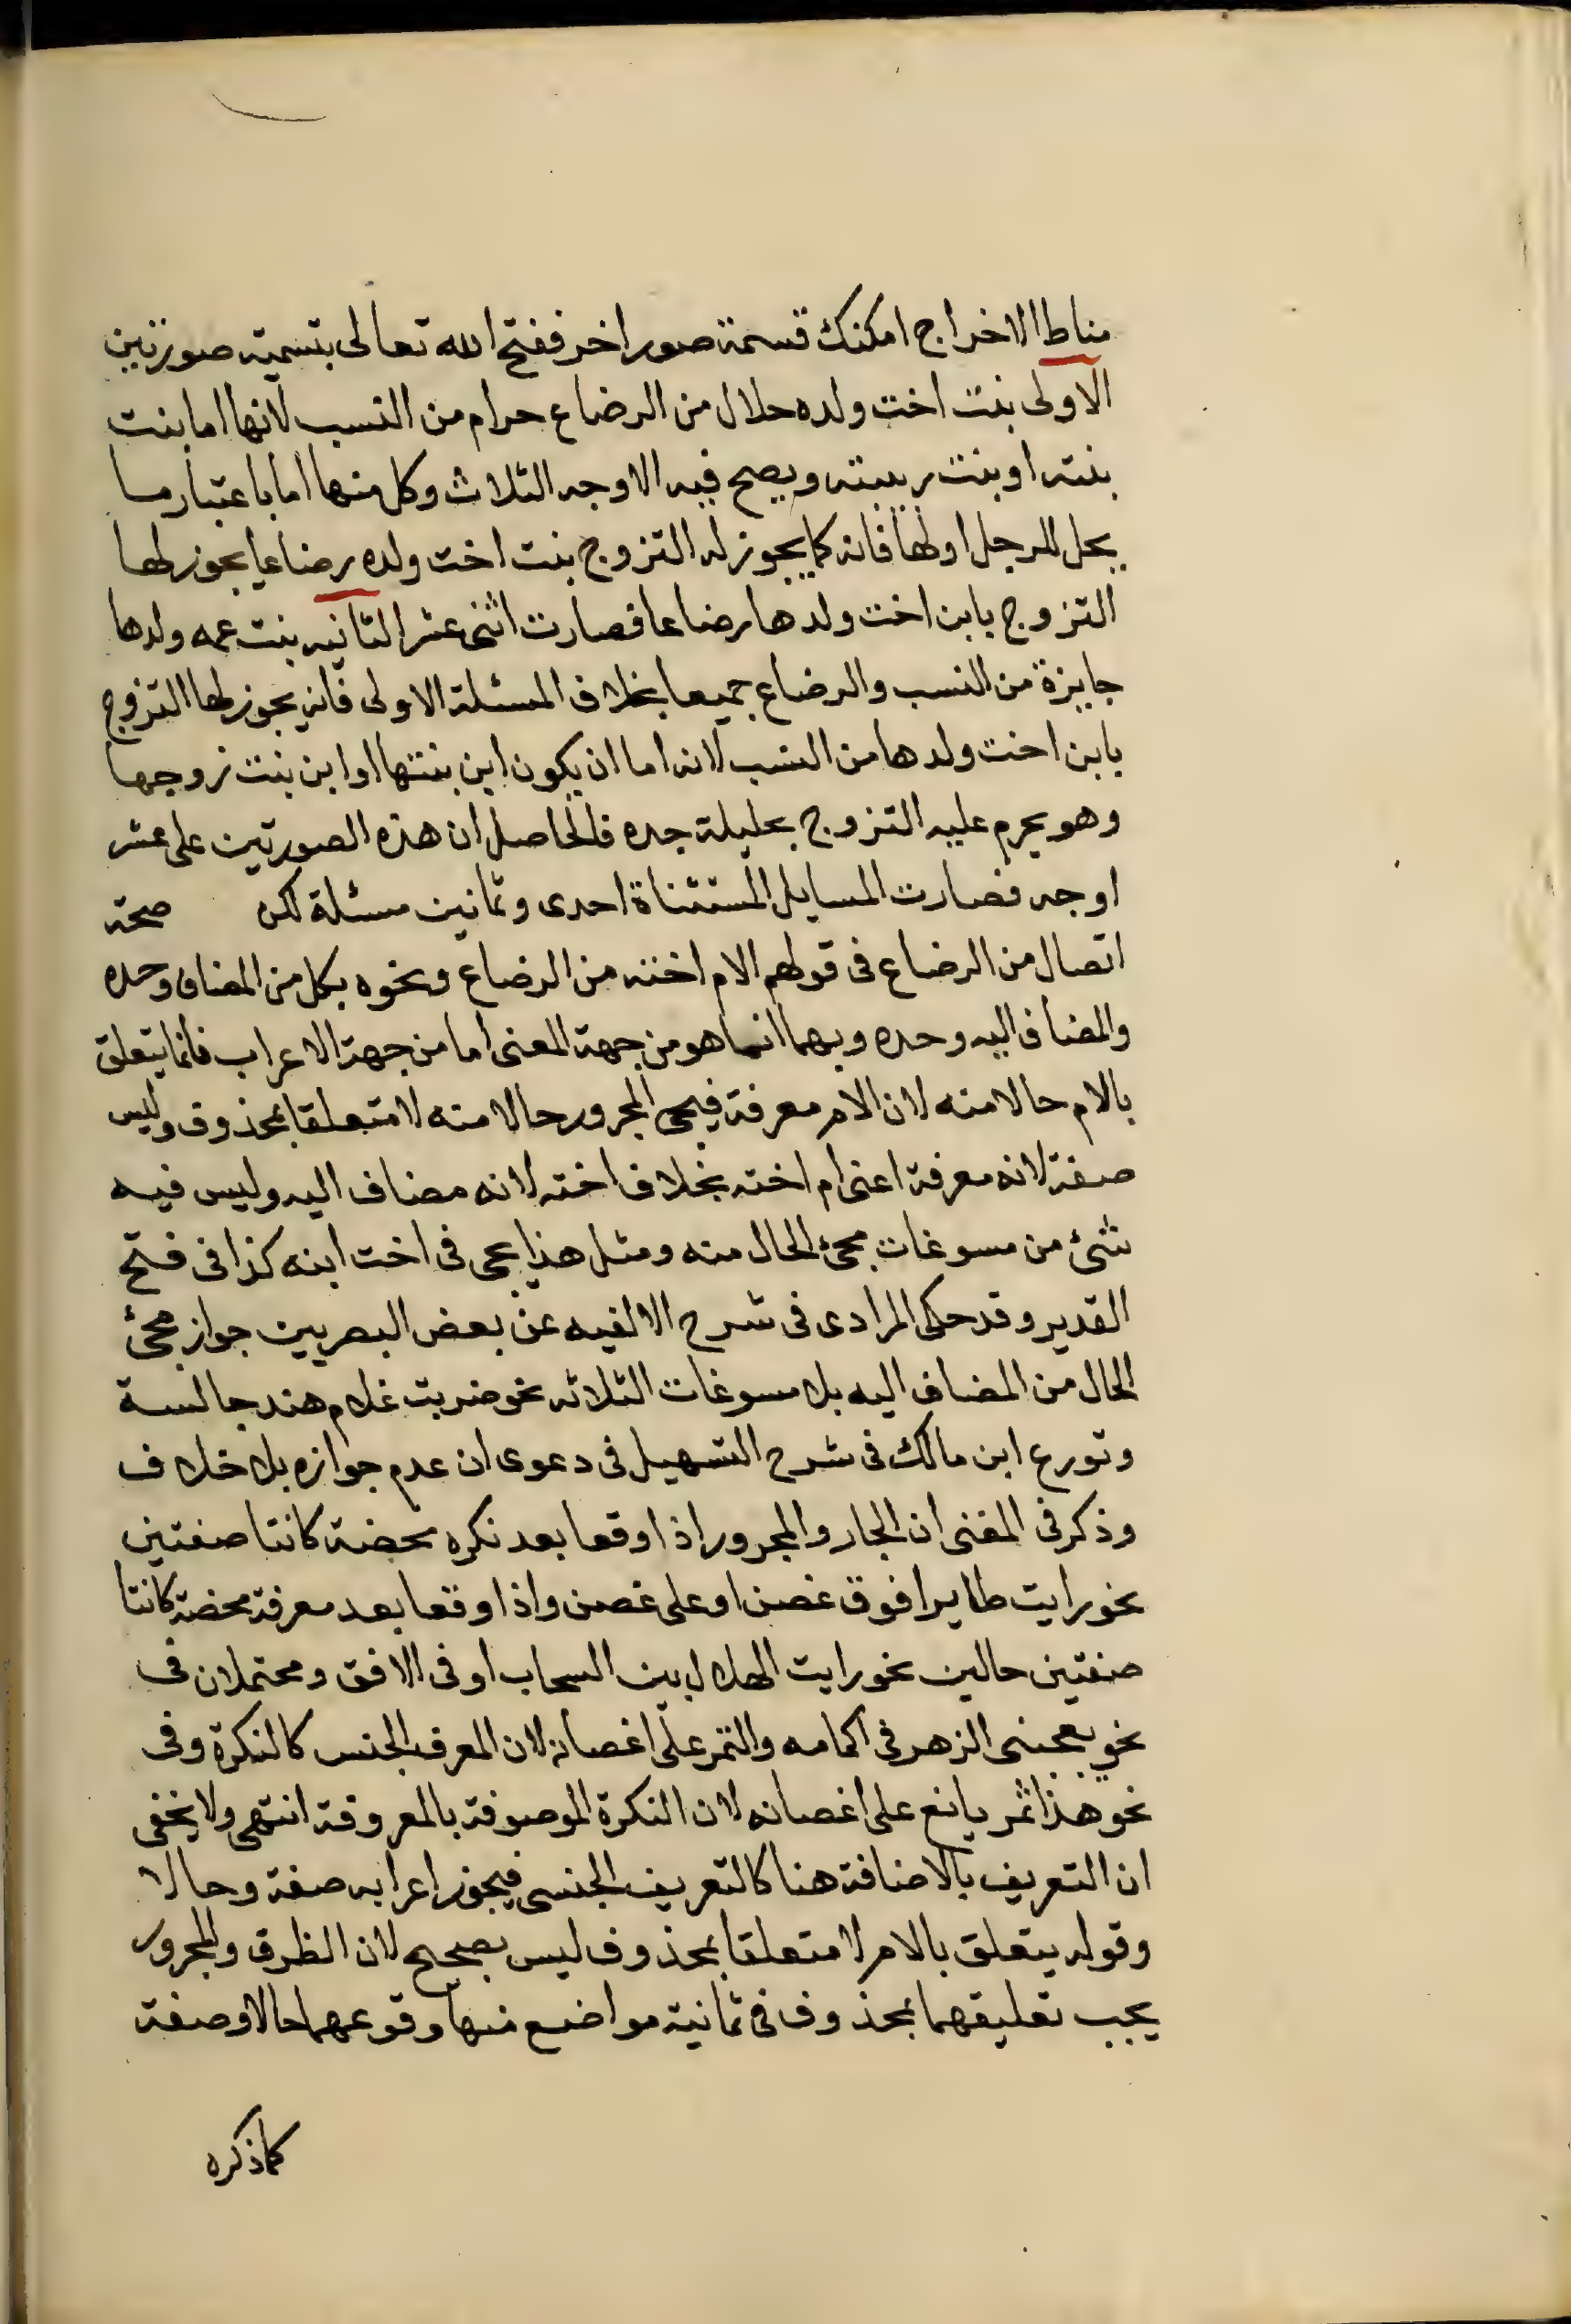 مناط الاخراج امكنك قسمة صور اخر ففتح الله تعالى بتسمية صورتين
الاولى بنت اخت ولده حلال من الرضاع حرام من النسب لانها اما بنت
بنته او بنت ربيبته ويصح فيه الاوجه الثلاث وكل منها اما باعتبار ما
يحل للرجل او لها فانه كما يجوز له التزوج بنت اخت ولده رضاعا يجوز لها
التزوج بابن اخت ولدها رضاعا فصارت اثنى عشر الثانيه بنت عمه ولدها
جايزة من النسب والرضاع جميعا بخلاف المسئلة الاولى فانه يجوز لها التزوج
بابن اخت ولدها من النسب لانه اما ان يكون ابن بنتها او ابن بنت زوجها
وهو يحرم عليه التزوج بحليلة جده فالحاصل ان هذه الصورتين على عشر
اوجه فصارت المسايل المستثناة احدى وثمانين مسئلة لكن صحة
اتصال من الرضاع فى قولهم الام اخته من الرضاع ونحوه بكل من المضاف وحده
والمضاف اليه وحده وبهما انما هو من جهة المعنى اما من جهة الاعراب فانما يتعلق
بالام حالا منه لان الام معرفة فيجى المجرور حالا منه لا متعلقا بمحذوف وليس
صفة لانه معرفة اعنى ام اخته بخلاف اخته لانه مضاف اليه وليس فيه
شئ من مسوغات مجئ الحال منه ومثل هذا يجى فى اخت ابنه كذا فى فتح
القدير وقد حكى المرادى فى شرح الالفيه عن بعض البصريين جواز مجئ
الحال من المضاف اليه بلا مسوغات الثلاثه نحو ضربت غلام هند جالسة
وتورع ابن مالك فى شرح التسهيل فى دعوى ان عدم جوازه بلا خلاف
وذكر فى المغنى ان الجار والمجرور اذا وقعا بعد نكره محضة كانتا صفتين
نحو رايت طايرا فوق غصن او على غصن واذا وقعا بعد معرفة محضة كانتا
صفتين حالين نحو رايت الهلال بين السحاب او فى الافق ومحتملان فى
نحو يعجبنى الزهر فى اكمامه والثمر على اغصانه لان المعرف الجنس كالنكرة وفى
نحو هذا ثمر يانع على اغصانه لان النكرة الموصوفة بالمعروفة انتهى ولا يخفى
ان التعريف بالاضافة هنا كالتعريف الجنسى فيجوز اعرابه صفة وحالا
وقوله يتعلق بالام لا متعلقا بمحذوف ليس بصحيح لان الظرف والمجرور
يجب تعليقهما بمحذوف فى ثمانية مواضع منها وقوعهما حالا وصفة
كما ذكره